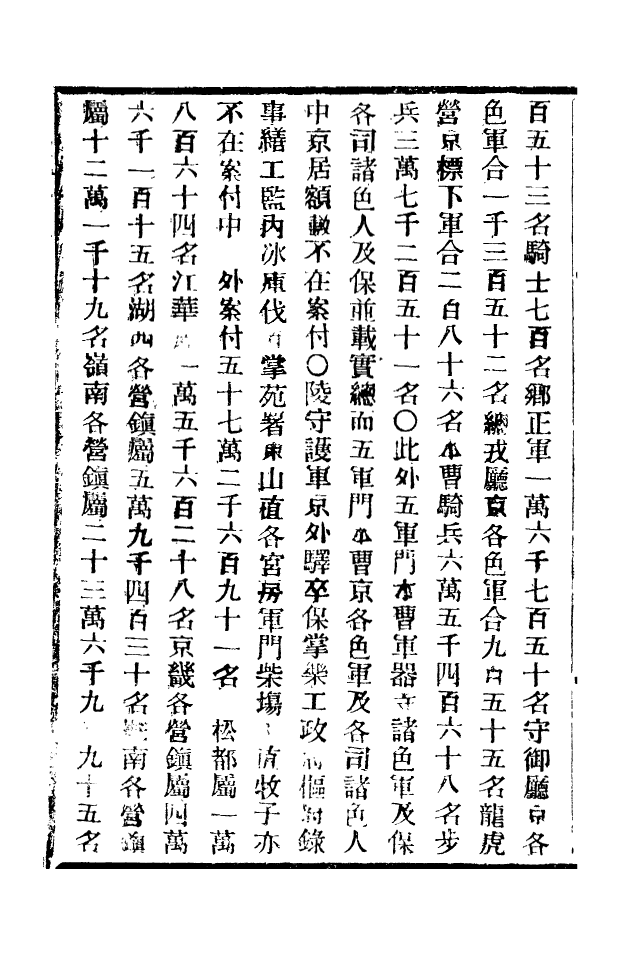 百五十三名騎士七百名鄉正軍一萬六千七百五十名守御廳京各
色軍合一千三百五十二名總戎廳京各色軍合九百五十五名龍虎
營京標下軍合二百八十六名本曹騎兵六萬五千四百六十八名步
兵三萬七千二百五十一名〇此外五軍門本曹軍器寺諸色軍及保
各司諸色人及保並載實總而五軍門本曹京各色軍及各司諸色人
中京居額數不在案付〇陵守護軍京外驛卒保掌樂工政府樞府錄
事繕工監內冰庫伐冰掌苑署東山直各宮房軍門柴場直牧子亦
不在案付中 外案付五十七萬二千六百九十一名 松都屬一萬
八百六十四名江華 一萬五千六百二十八名京畿各營鎭屬四萬
六千一百十五名湖西各營鎭屬五萬九千四百三十名湖南各營鎭
屬十二萬一千十九名嶺南各營鎭屬二十三萬六千九 九十五名